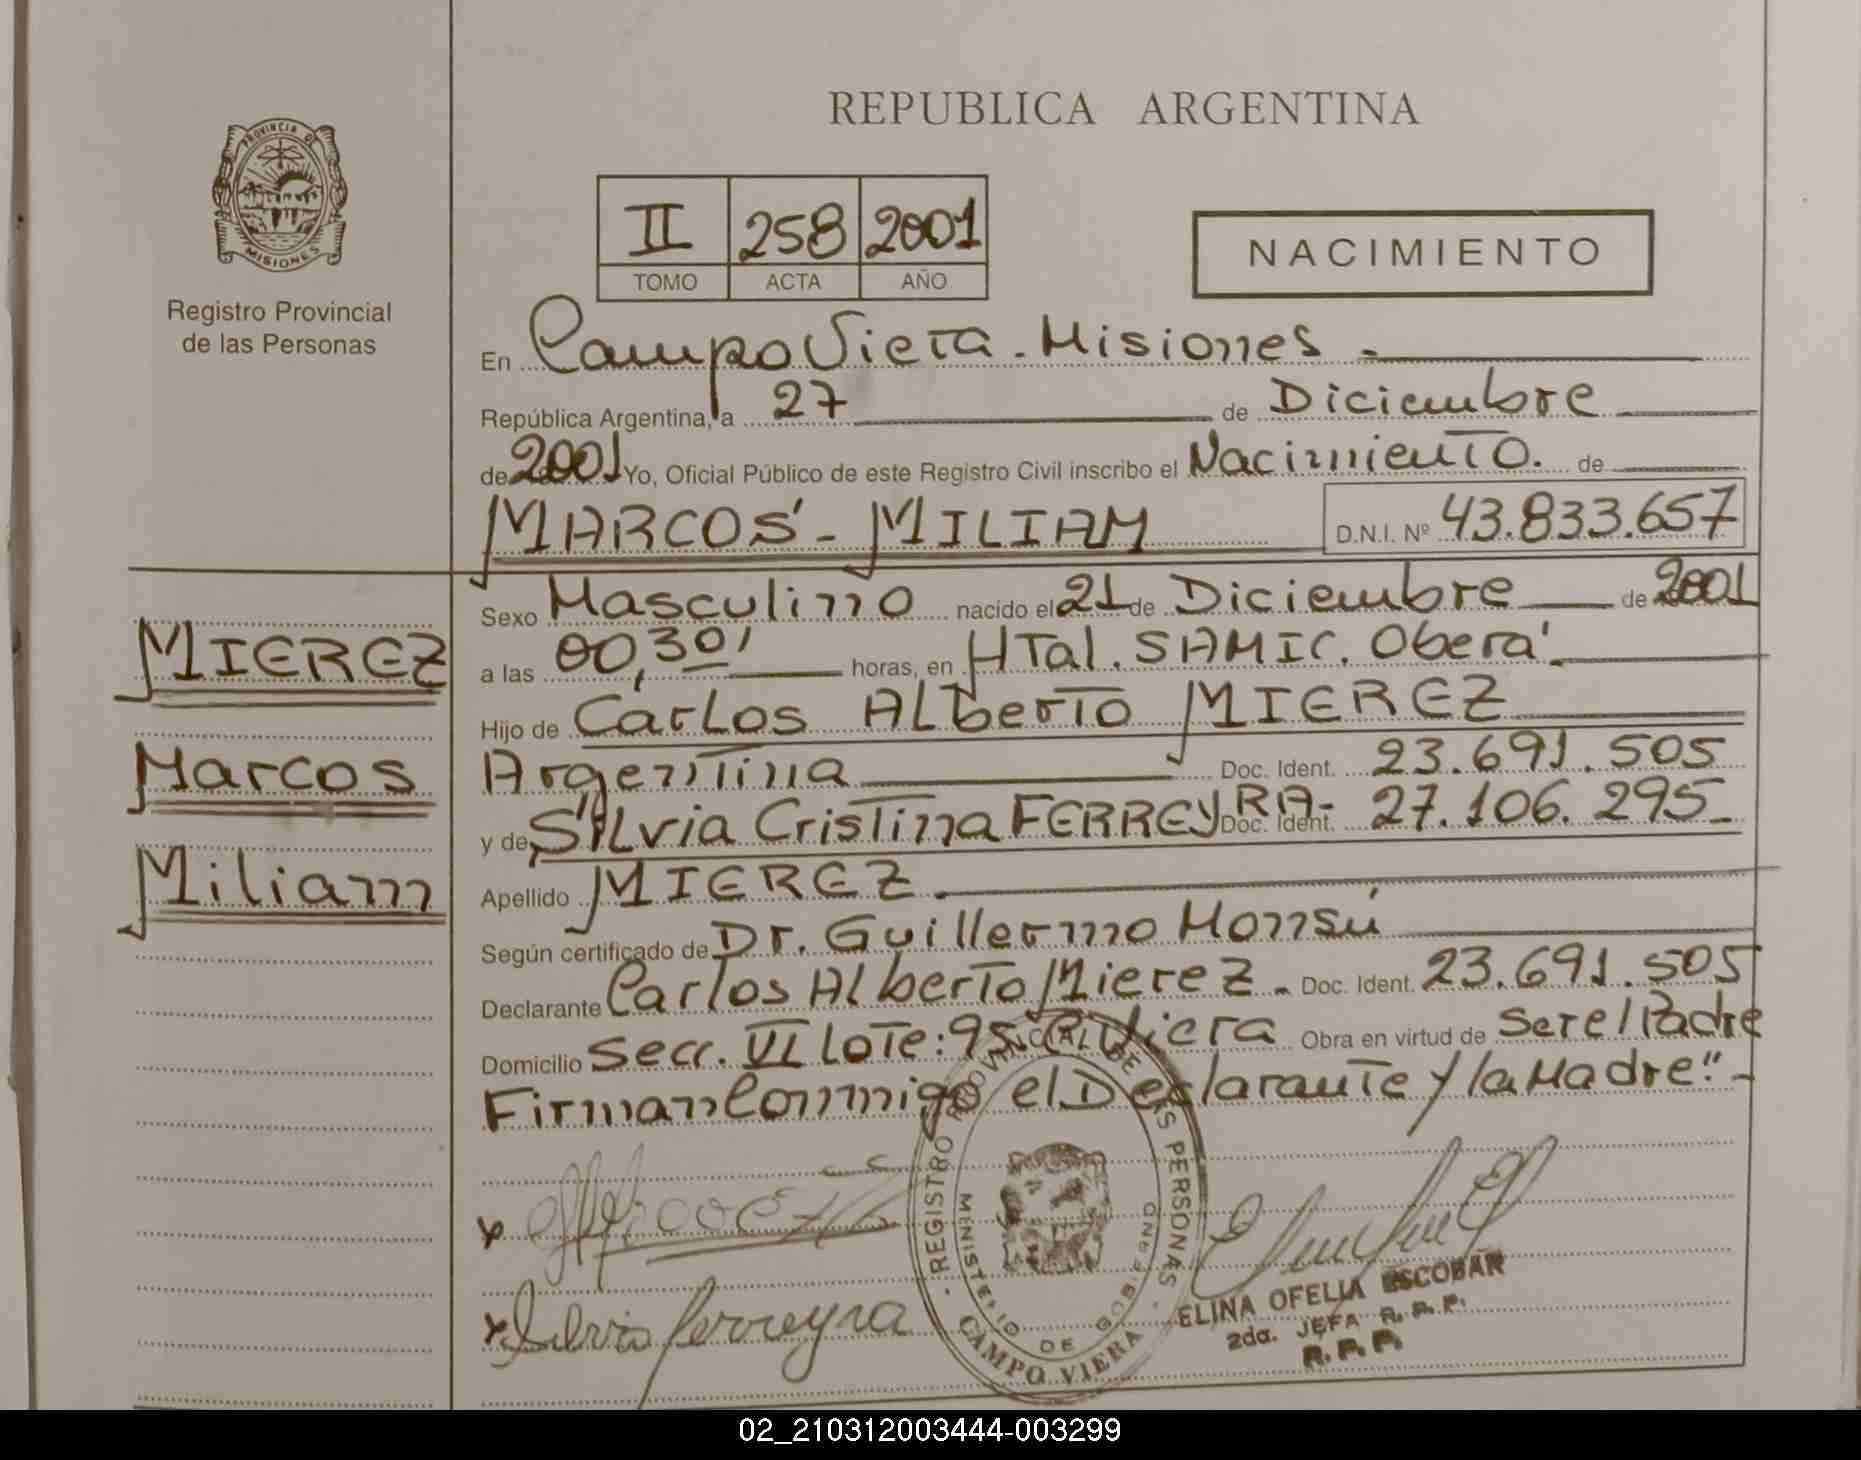 REPUBLICA ARGENTINA
PROVINCIA D
MISIONES
Registro Provincial
de las Personas
II 258 2001
TOMO ACTA AÑO
NACIMIENTO
En Campo Viera - Misiones -
República Argentina, a 27 de Diciembre
de 2001 Yo, Oficial Público de este Registro Civil inscribo el Nacimiento. de
MARCOS - MILIAM D.N.I. Nº 43.833.657
MIEREZ
Marcos
Miliam
Sexo Masculino nacido el 21 de Diciembre de 2001
a las 00,30' horas, en HTal. SAMIC. Oberá -
Hijo de Carlos Alberto MIEREZ
Argentina Doc. Ident. 23.691.505
y de Silvia Cristina FERREYRA- Doc. Ident. 27.106.295-
Apellido MIEREZ -
Según certificado de Dr. Guillermo Monsú
Declarante Carlos Alberto Mierez - Doc. Ident. 23.691.505
Domicilio Secc. VI Lote: 95. C. Viera Obra en virtud de ser el Padre
Firman Conmigo el Declarante y la Madre." -
x
x Silvia Ferreyra
REGISTRO PROVINCIAL DE LAS PERSONAS
MINISTERIO DE GOBIERNO
CAMPO VIERA
ELINA OFELIA ESCOBAR
2da. JEFA R.P.P.
R.P.P.
02_210312003444-003299